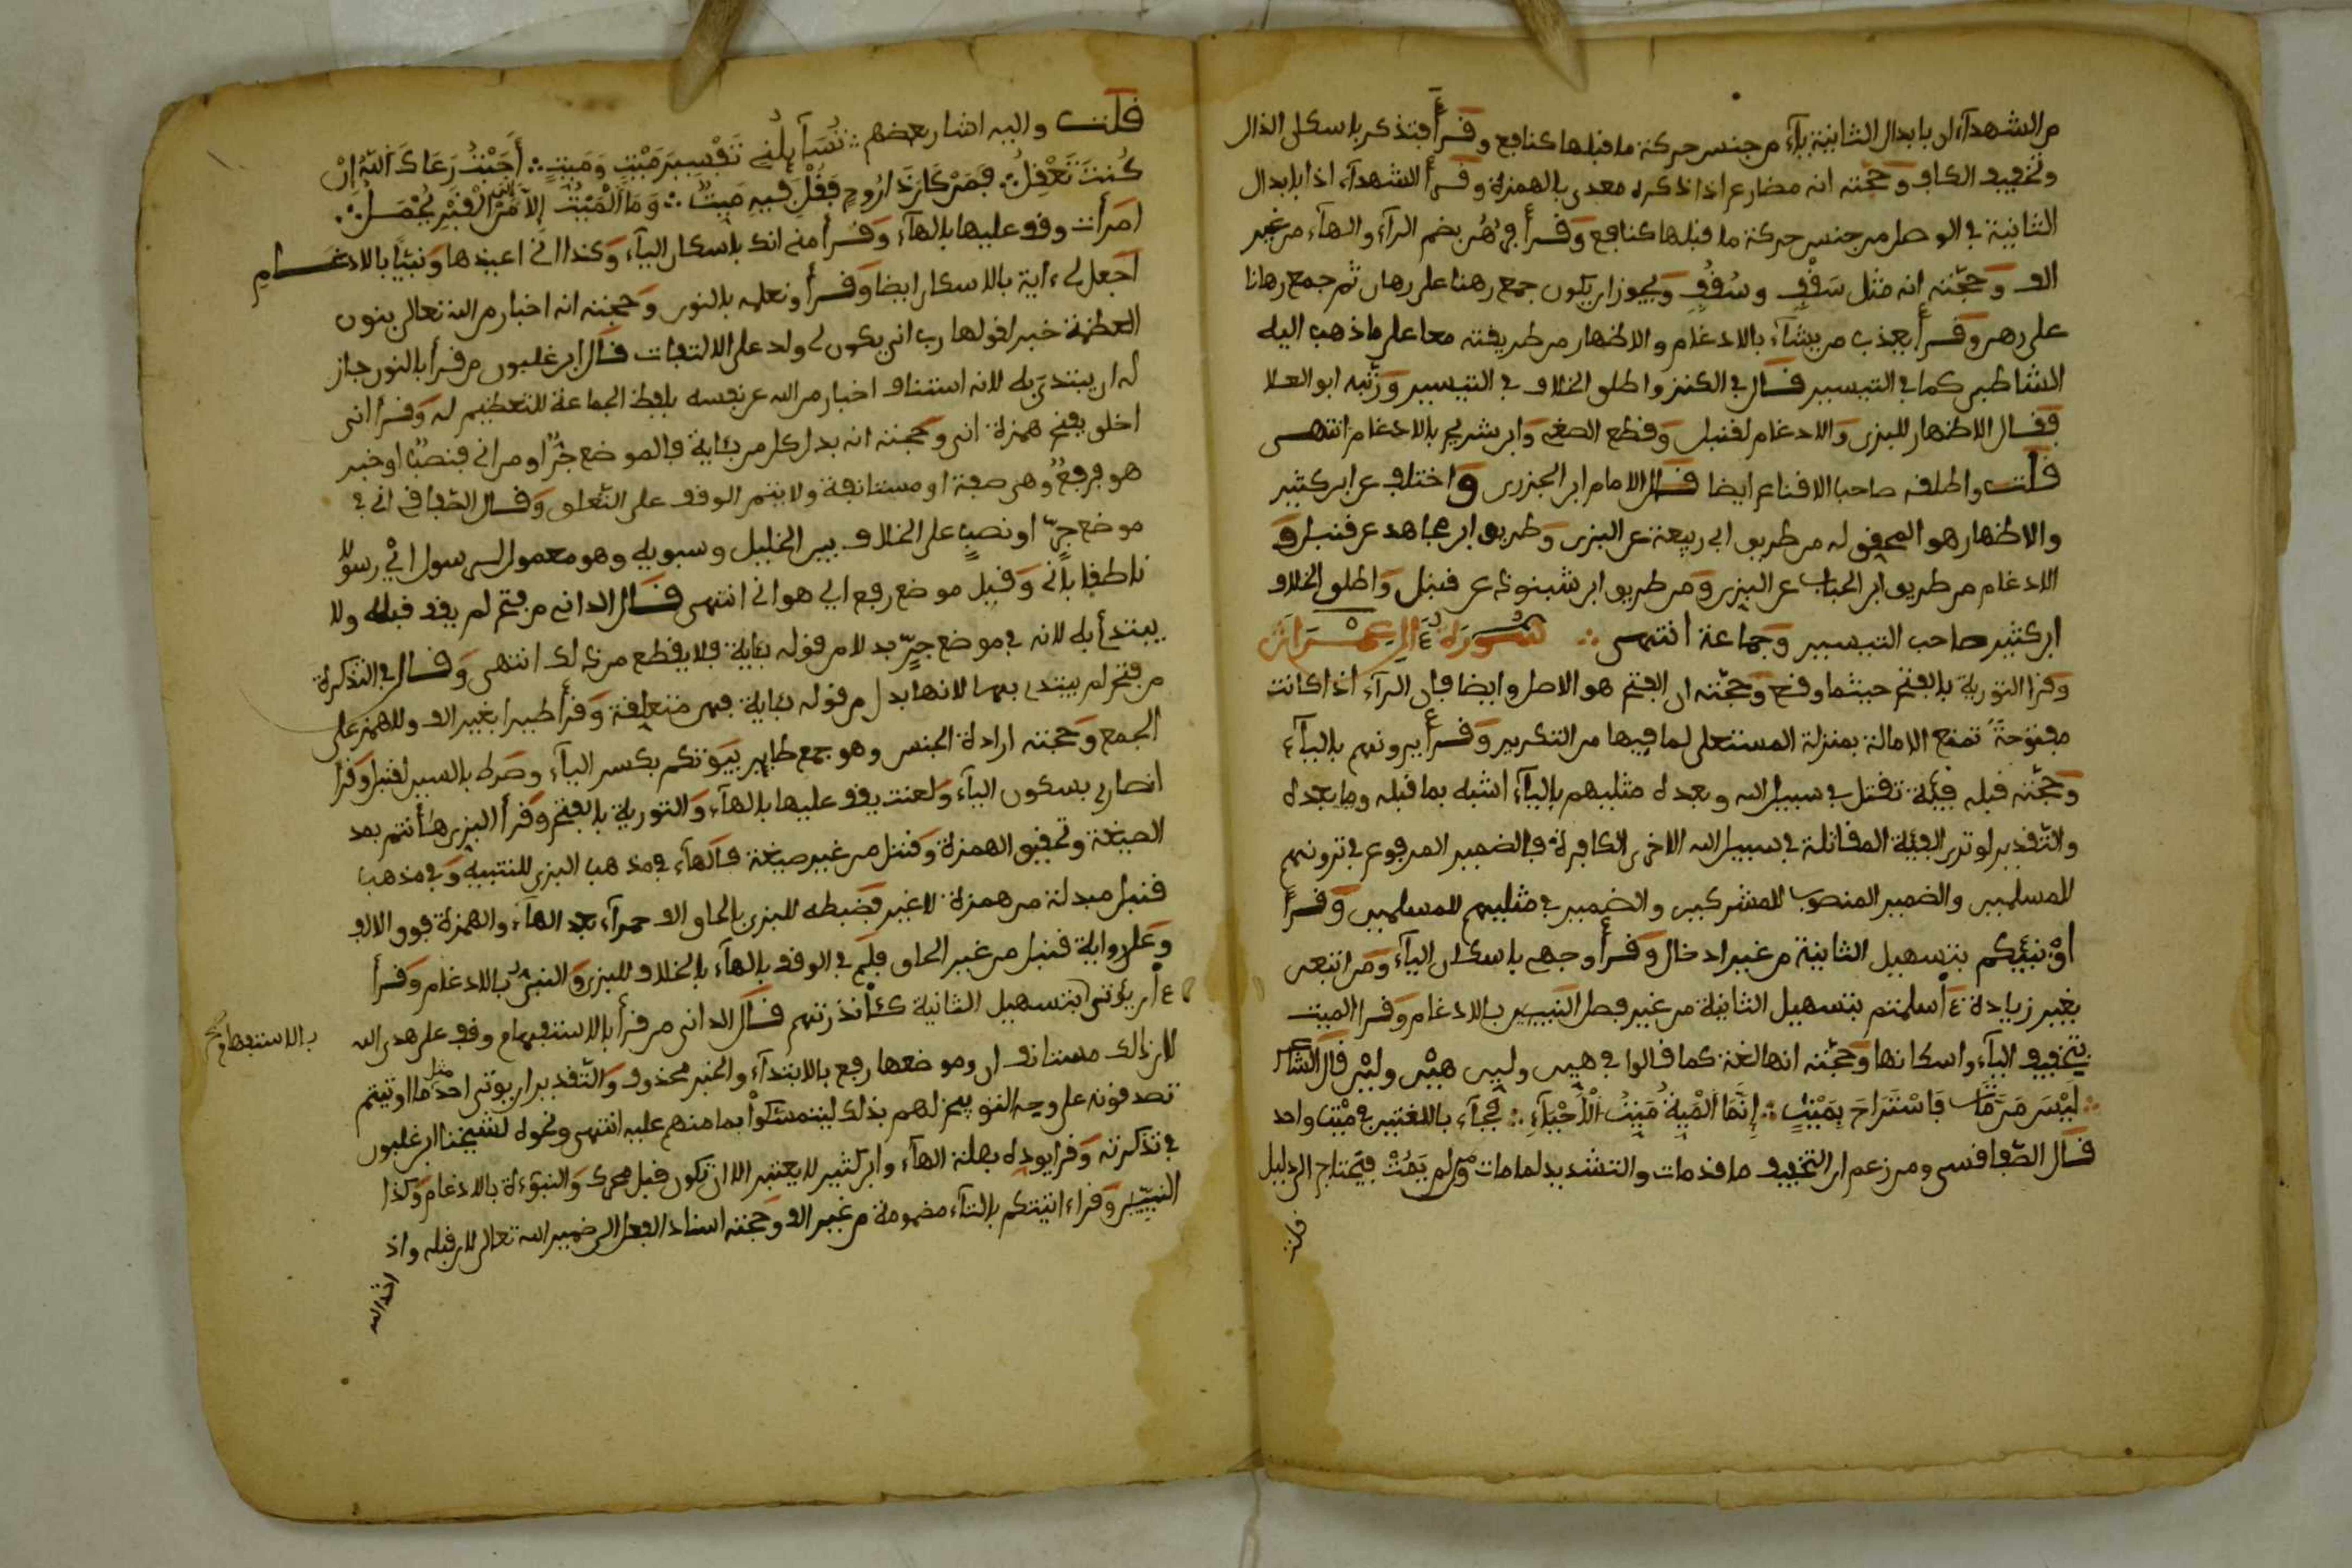 من الشهدآء ان بابدال الثانية يآء من جنس حركة ما قبلها كنافع وقرأ فتذكر باسكان الذال
وتخفيف الكاف وحجته انه مضارع اذا ذكره معدى بالهمزة وقرأ الشهدآء اذا بابدال
الثانية في الوصل من جنس حركة ما قبلها كنافع وقرأ فرُهُن بضم الرآء والهآء من غير
الف وحجّته انه مثل سَقْفٍ وسُقُفٍ ويجوز ان يكون جمع رهنا على رهان ثم جمع رهانا
على رهن وقرأ يعذب من يشآء بالادغام والاظهار من طريقته معا على ما ذهب اليه
الشاطبي كما في التيسير قال في الكنز واطلق الخلاف في التيسير ورتّبه ابو العلا
فقال الاظهار للبزي والادغام لقنبل وقطع الصغى وابن شريح بالادغام انتهى
قلت واطلقه صاحب الاقناع ايضا قال الامام ابن الجزري واختلف عن ابن كثير
والاظهار هو المحقق له من طريق ابي ربيعة عن البزي وطريق ابن مجاهد عن قنبل و
الادغام من طريق ابن الحباب عن البزي ومن طريق ابن شنبوذ عن قنبل واطلق الخلاف
ابن كثير صاحب التيسير وجماعة انتهى ∴ سُورَة ءَالِ عِمْرَان
وقرا التورية بالفتح حيثما وقع وحجّته ان الفتح هو الاصل وايضا فان الرآء اذا كانت
مفتوحةً تمنع الامالة بمنزلة المستعلى لما فيها من التكرير وقرأ يرونهم باليآء
وحجّته قبله فيئة تقتل في سبيل الله وبعده مثليهم باليآء اشبه بما قبله وما بعده
والتقدير لو ترى الفيئة المقاتلة في سبيل الله الاخرى الكافرة فالضمير المرفوع في ترونهم
للمسلمين والضمير المنصوب للمشركين والضمير في مثليهم للمسلمين وقرأ
اؤنبئكم بتسهيل الثانية من غير ادخال وقرأ وجهى باسكان اليآء ومن اتبعن
بغير زيادة ءَأسلمتم بتسهيل الثانية من غير فصل النبيين بالادغام وقرا الميت
بتخفيف اليآء واسكانها وحجّته انها لغة كما قالوا في هيّن وليّن هيْن وليْن قال الشاعر
∴ لَيْسَ مَن مَّاتَ فَاسْتَرَاحَ بِمَيْتٍ ∴ إِنَّمَا الْمَيْتُ مَيِّتُ الْأَحْيَآءِ ∴ فجآء باللغتين في ميْت واحد
قال الصفاقسي ومن زعم ان التخفيف ما قد مات والتشديد لما مات ومن لم يَمُتْ فيحتاج الى دليل
قلت
قلت واليه اشار بعضهم ∴ تُسَآئِلُنِي تَفْسِيرَ مَيْتٍ وَمَيِّتٍ ∴ أَجَبْتُ رَعَاكَ اللهُ إِنْ
كُنتَ تَعْقِلُ ∴ فَمَن كَانَ ذَا رُوحٍ فَقُلْ فِيهِ مَيِّتٌ ∴ وَمَا الْمَيْتُ إِلَّا مَنْ إِلَى الْقَبْرِ يُحْمَلُ ∴
امرأت وقف عليها بالهآء وقرأ مني انك باسكان اليآء وكذا اني اعيذها ونبيّا بالادغام
اجعل لي ءاية بالاسكان ايضا وقرأ ونعلمه بالنون وحجته انه اخبار من الله تعالى بنون
العظمة خبر لقولها رب انى يكون لي ولد على الالتفات قال ابن غلبون من قرأ بالنون جاز
له ان يبتدئ به لانه استئناف اخبار من الله عن نفسه بلفظ الجماعة للتعظيم له وقرأ انى
اخلق بفتح همزة انى وحجته انه بدل كل من بئاية فالموضع جرّ او من اني فنصبٌ او خبر
هو فرفعٌ وهي صفة او مستانفة ولا يتم الوقف على التعلق وقال الصفاقسي اني في
موضع جرٍّ او نصبٍ على الخلاف بين الخليل وسبويه وهو معمول لرسول اىْ رسولا
ناطقا بأني وقيل موضع رفع اى هو اني انتهى قال الداني من فتح لم يقف قبله ولا
يبتدأ به لانه في موضع جرٍّ بدلا من قوله بئاية فلا يقطع من ذلك انتهى وقال في التذكرة
من فتح لم يبتدئ بها لانها بدل من قوله بئاية فهى متعلقة وقرأ طيرا بغير الف وللهمز على
الجمع وحجته ارادة الجنس وهو جمع طاير بيوتكم بكسر البآء وصرط بالسين لقنبل وقرأ
انصارى بسكون اليآء ولعنت يقف عليها بالهآء والتورية بالفتح وقرأ البزى هٰأنتم بمد
الصيغة وتحقيق الهمزة وقنبل من غير صيغة فالهآء في مذهب البزى للتنبيه وفي مذهب
قنبل مبدلة من همزة لا غير فضبطه للبزى بالحاق الف حمرآء بعد الهآء والهمزة فوق الالف
وعلى رواية قنبل من غير الحاق فلم في الوقف بالهآء بالخلاف للبزى والنبىّ بالادغام وقرأ
ءأن يؤتى بتسهيل الثانية كـءأنذرتهم قال الداني من قرأ بالاستفهام وقف على هدى الله
بالاستفهام صح
لان ذالك مستانف ان وموضعها رفع بالابتدآء والخبر محذوف والتقدير ان يؤتى احد مثل ما اوتيتم
تصدقونه على وجه التوبيخ لهم بذلك ليتمسّكوا بما هم عليه انتهى ونحوه لشيخنا ابن غلبون
في تذكرته وقرا يوده بصلة الهآء وابن كثير لا يعتبر الا ان يكون قبل محرك والنبوءة بالادغام وكذا
النبيّين وقراء اتيتكم بالتآء مضمومة من غير الف وحجته اسناد الفعل الى ضمير الله تعالى لان قبله واذ
اخذ الله